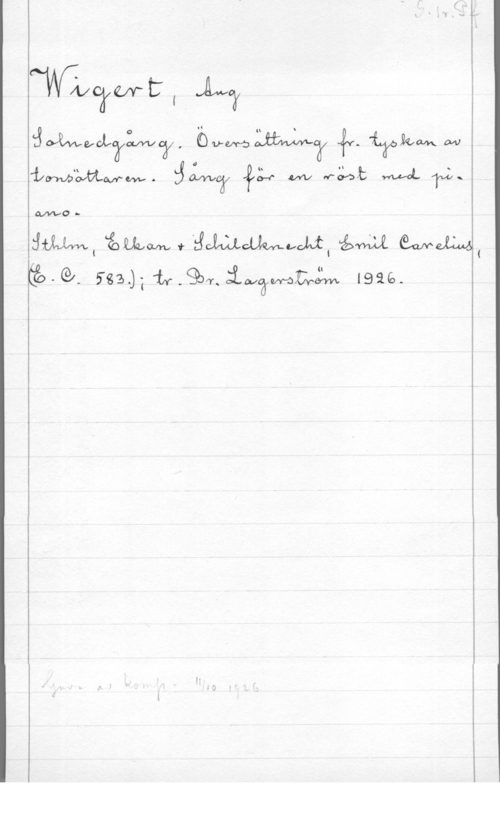 S.1r.Sf
Wigert, Aug
Solnedgång. Översättning fr. tyskan av
tonsättaren. Sång för en röst med pi-
ano.
Sthlm, Elkan & Schildknecht, Emil Carelius,
(E. C. 583.); tr. Br. Lagerström 1926.
av komp. 11/10 1926